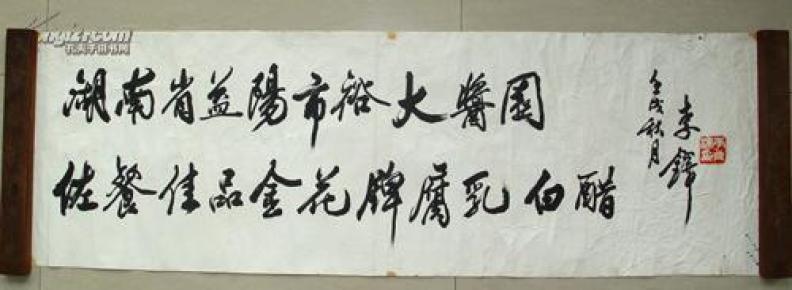 湖南省益陽市裕大醬園
佐餐佳品金花牌腐乳白醋
壬戌秋月
李鐸
孔夫子旧书网